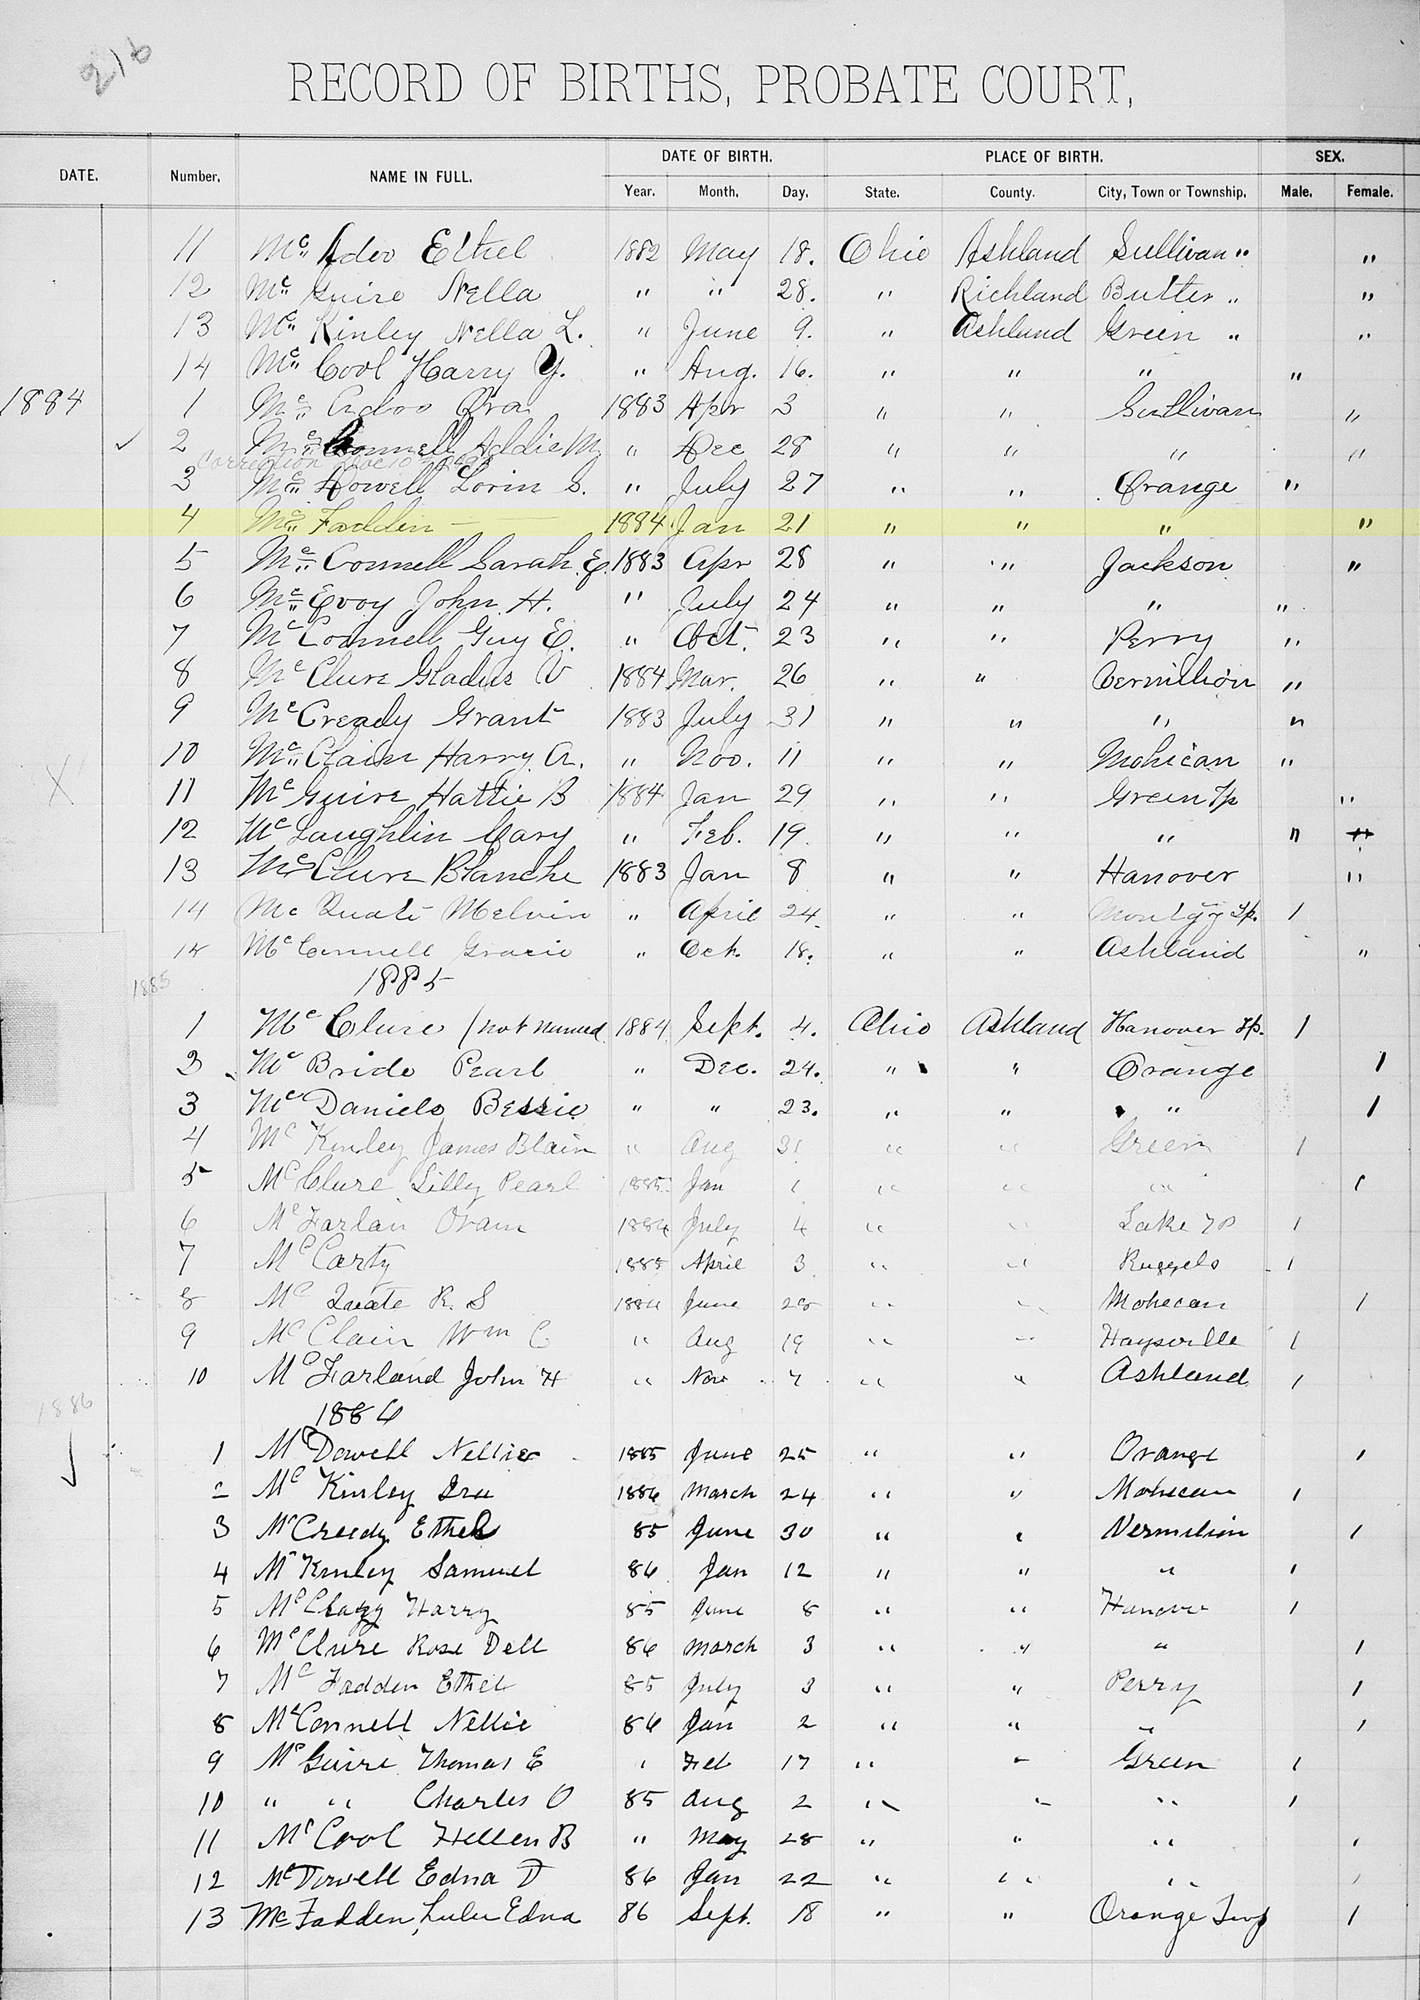 216
RECORD OF BIRTHS, PROBATE COURT,
DATE. Number. NAME IN FULL. DATE OF BIRTH. PLACE OF BIRTH. SEX.
Year. Month. Day. State. County. City, Town or Township. Male. Female.
11 Mc Adoo Ethel 1882 May 18. Ohio Ashland Sullivan " "
12 Mc Guire Nella " " 28. " Richland Butler " "
13 Mc Kinley Nella L. " June 9. " Ashland Green " "
14 Mc Cool Harry Y. " Aug. 16. " " " "
1884 1 Mc Adoo Ora 1883 Apr 3 " " Sullivan "
✓ 2 Mc Connell Addie M " Dec 28 " " " "
Correction
3 Mc Dowell Lorin S. " July 27 " " Orange "
4 Mc Fadden — — 1884 Jan 21 " " " "
5 Mc Connell Sarah E. 1883 Apr 28 " " Jackson "
6 Mc Evoy John H. " July 24 " " " "
7 Mc Connell Guy E. " Oct. 23 " " Perry "
8 Mc Clure Gladus V 1884 Mar. 26 " " Vermillion "
9 Mc Cready Grant 1883 July 31 " " " "
10 Mc Clain Harry A. " Nov. 11 " " Mohican "
X 11 Mc Guire Hattie B 1884 Jan 29 " " Green Tp "
12 Mc Laughlin Gary " Feb. 19. " " " " "
13 Mc Clure Blanche 1883 Jan 8 " " Hanover "
14 Mc Quate Melvin " April 24 " " Montgy Tp. 1
15 Mc Connell Gracie " Oct. 18. " " Ashland "
1885 1885
1 Mc Clure (not named 1884 Sept. 4. Ohio Ashland Hanover Tp. 1
2 Mc Bride Pearl " Dec. 24. " " Orange 1
3 Mc Daniels Bessie " " 23. " " " 1
4 Mc Kinley James Blain " Aug 31 " " Green 1
5 Mc Clure Lilly Pearl 1885 Jan 1 " " " 1
6 Mc Farlan Oram 1884 July 4 " " Lake Tp 1
7 Mc Carty 1885 April 3 " " Ruggels 1
8 Mc Quate R. S 1884 June 28 " " Mohecan 1
9 Mc Clain Wm C " Aug 19 " " Haysville 1
10 Mc Farland John H " Nov 7 " " Ashland 1
1886 1886
1 Mc Dowell Nellie 1885 June 25 " " Orange 1
2 Mc Kinley Ira 1886 March 24 " " Mohecan 1
3 McCreedy Ethel 85 June 30 " " Vermilion 1
4 Mc Kinley Samuel 86 Jan 12 " " " 1
5 Mc Clagg Harry 85 June 8 " " Hanover 1
6 Mc Clure Rose Dell 86 March 3 " " " 1
7 Mc Fadden Ethel 85 July 3 " " Perry 1
8 McConnell Nellie 86 Jan 2 " " " 1
9 Mc Guire Thomas E " Feb 17 " " Green 1
10 " " Charles O 85 Aug 2 " " " 1
11 Mc Cool Hellen B " May 28 " " " 1
12 McDowell Edna D 86 Jan 22 " " " 1
13 McFadden, Lulu Edna 86 Sept. 18 " " Orange Twp 1